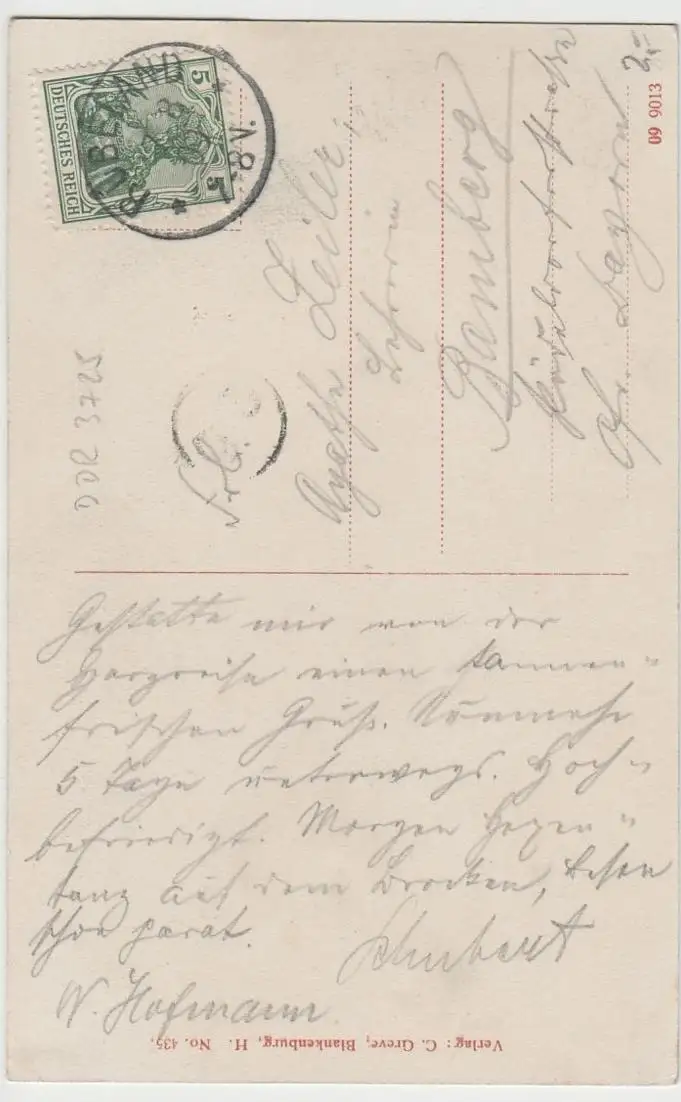 DEUTSCHES REICH
5 5
RÜBELAND
Frl.
Agathe Zeiler,
Lehrerin
Bamberg
Bayern
2,-
09 9013
DDR 3725
Gestatte mir von der
Harzreise einen tannen-
frischen Gruß. Nunmehr
5 Tage unterwegs. Hoch-
befriedigt. Morgen Hexen-
tanz auf dem Brocken, Besen
schon parat.
Schubert
W. Hofmann
Verlag: C. Greve, Blankenburg, H. No. 435.